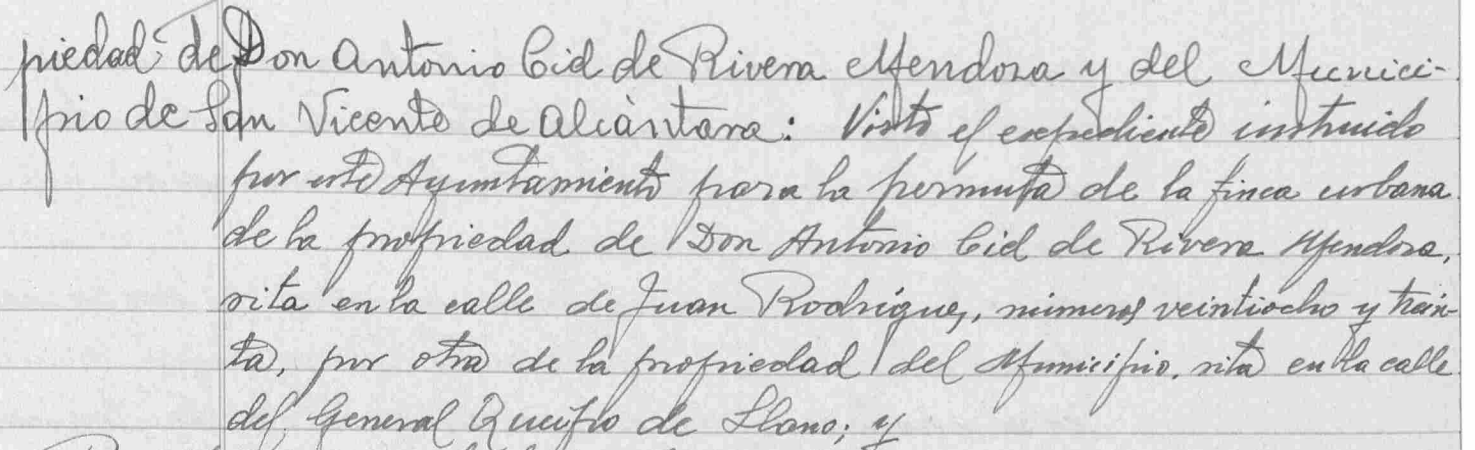 piedad de Don Antonio Cid de Rivera Mendoza y del Munici-
pio de San Vicente de Alcántara: Visto el expediente instruido
por este Ayuntamiento para la permuta de la finca urbana
de la propiedad de Don Antonio Cid de Rivera Mendoza,
sita en la calle de Juan Rodríguez, números veintiocho y trein-
ta, por otra de la propiedad del Municipio, sita en la calle
del General Queipo de Llano; y